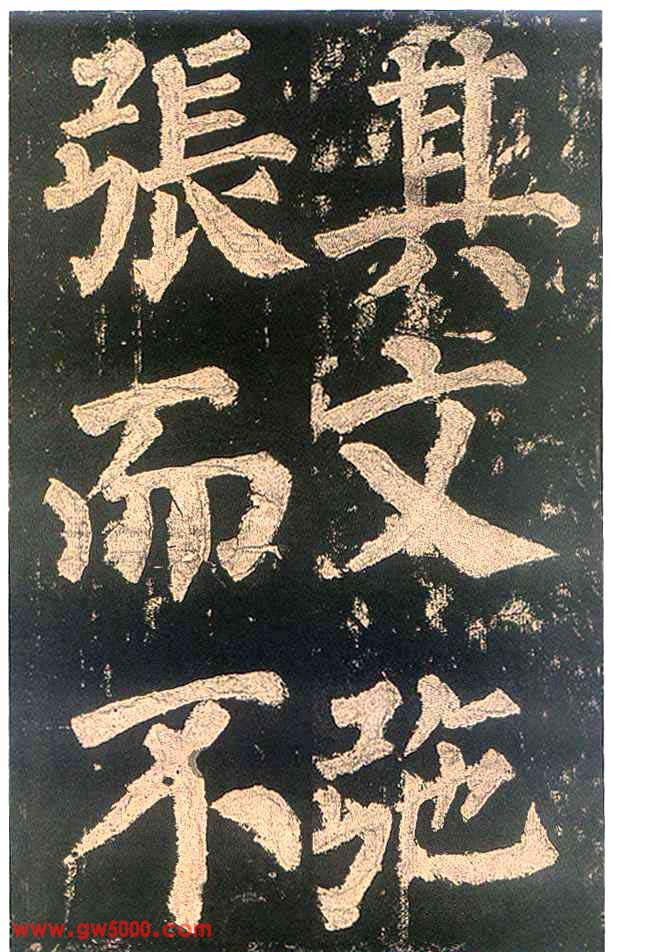 其文弛
張而不
www.gw5000.com